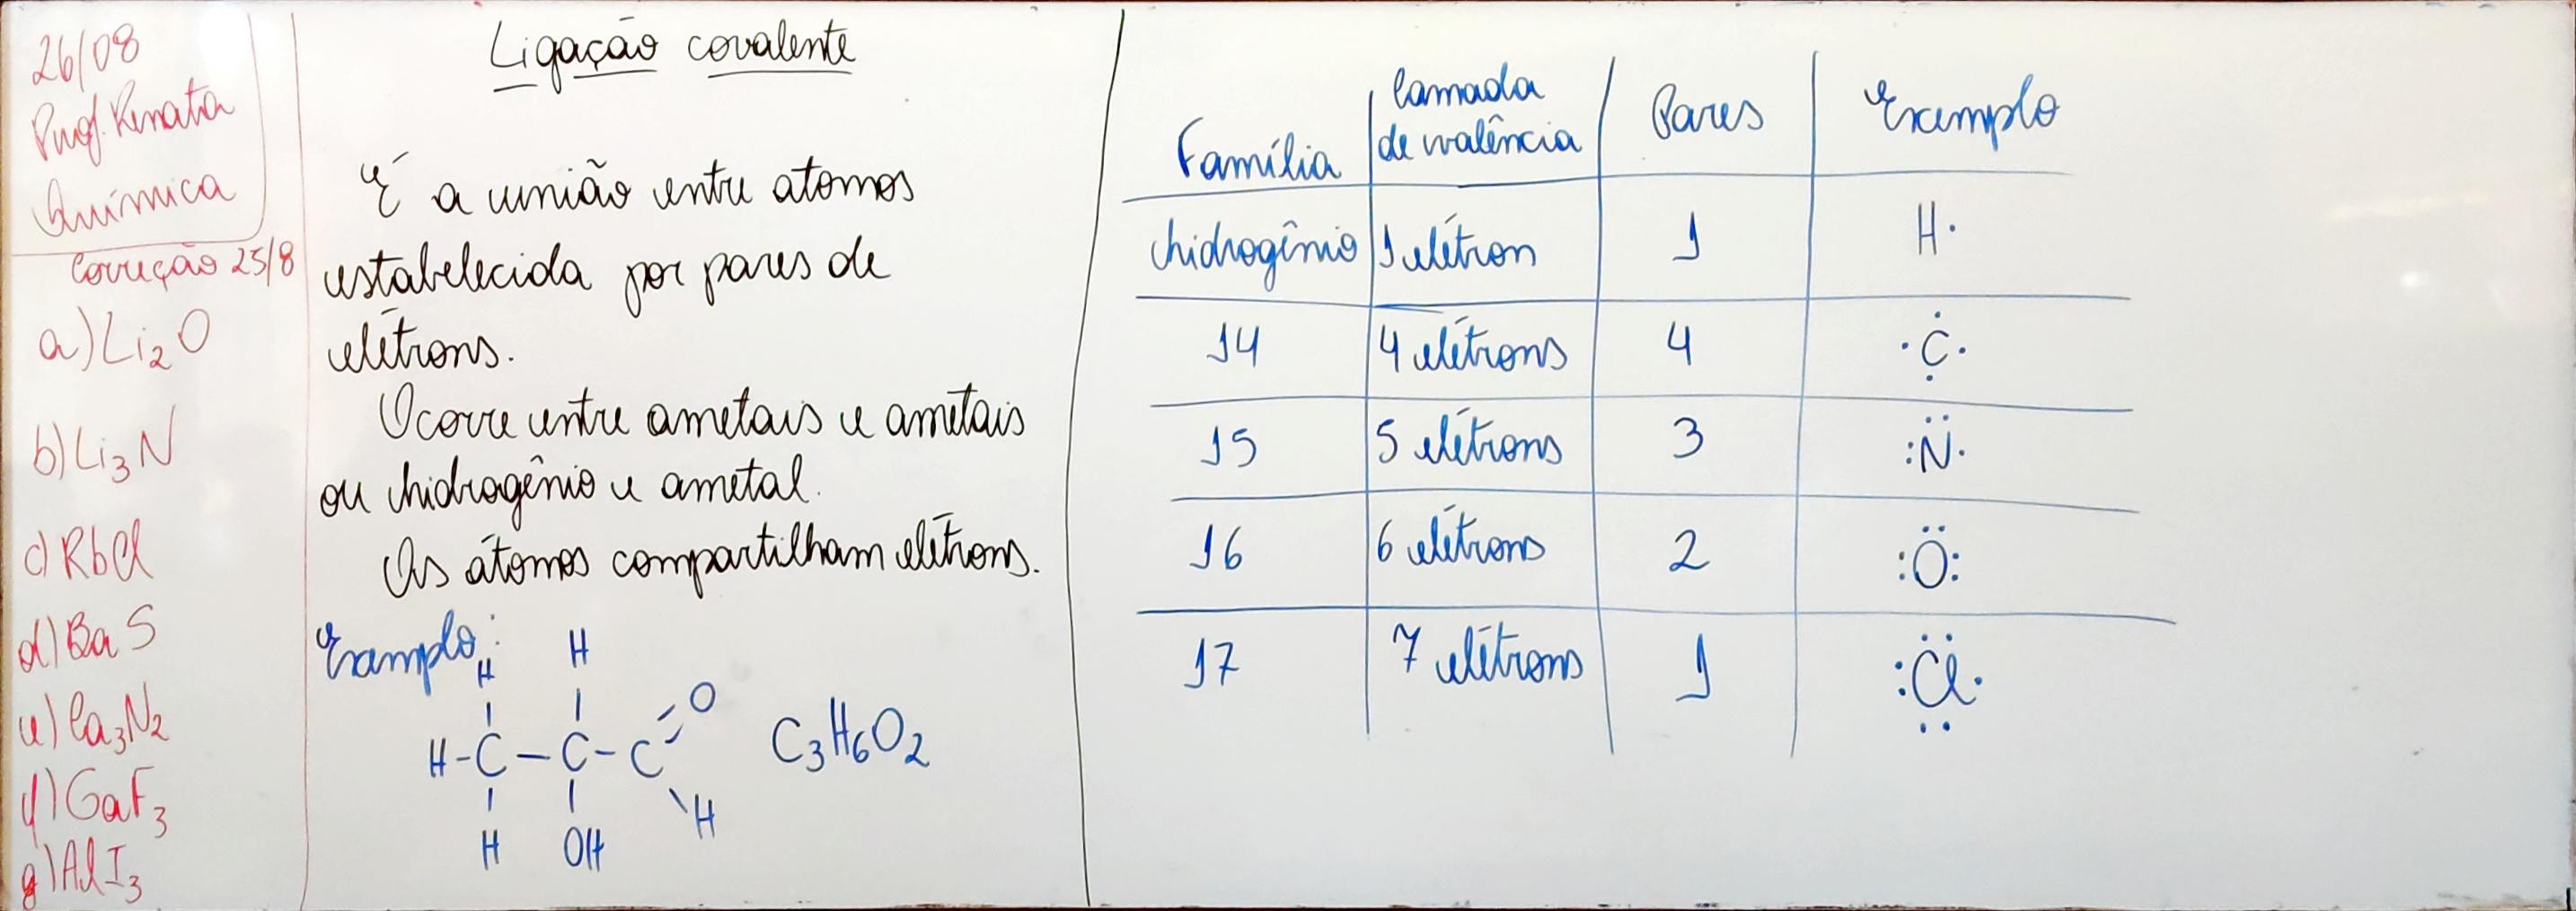 26/08
Prof. Renata
Química
Correção 25/8
a) Li₂O
b) Li₃N
c) RbCl
d) BaS
e) Ca₃N₂
f) GaF₃
g) AlI₃
Ligação covalente
É a união entre atomos
estabelecida por pares de
elétrons.
Ocorre entre ametais e ametais
ou hidrogênio e ametal.
Os átomos compartilham elétrons.
Exemplo:
H H
O
H-C-C-C
H
H OH
C₃H₆O₂
Família Camada de valência Pares Exemplo
hidrogênio 1 elétron 1 H
14 4 elétrons 4 C
15 5 elétrons 3 N
16 6 elétrons 2 O
17 7 elétrons 1 Cl